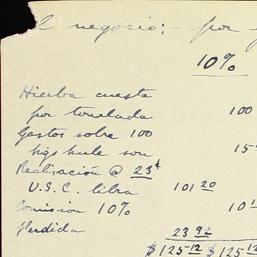 negocio:- por
10%
Hierba cuesta
por tonelada 100
Gastos sobre 100
kgs hule son 15
Realisación @ 23¢
U.S.C. libra 101 20
Comision 10% 10
Perdida 23 92
$125 12 $125 12